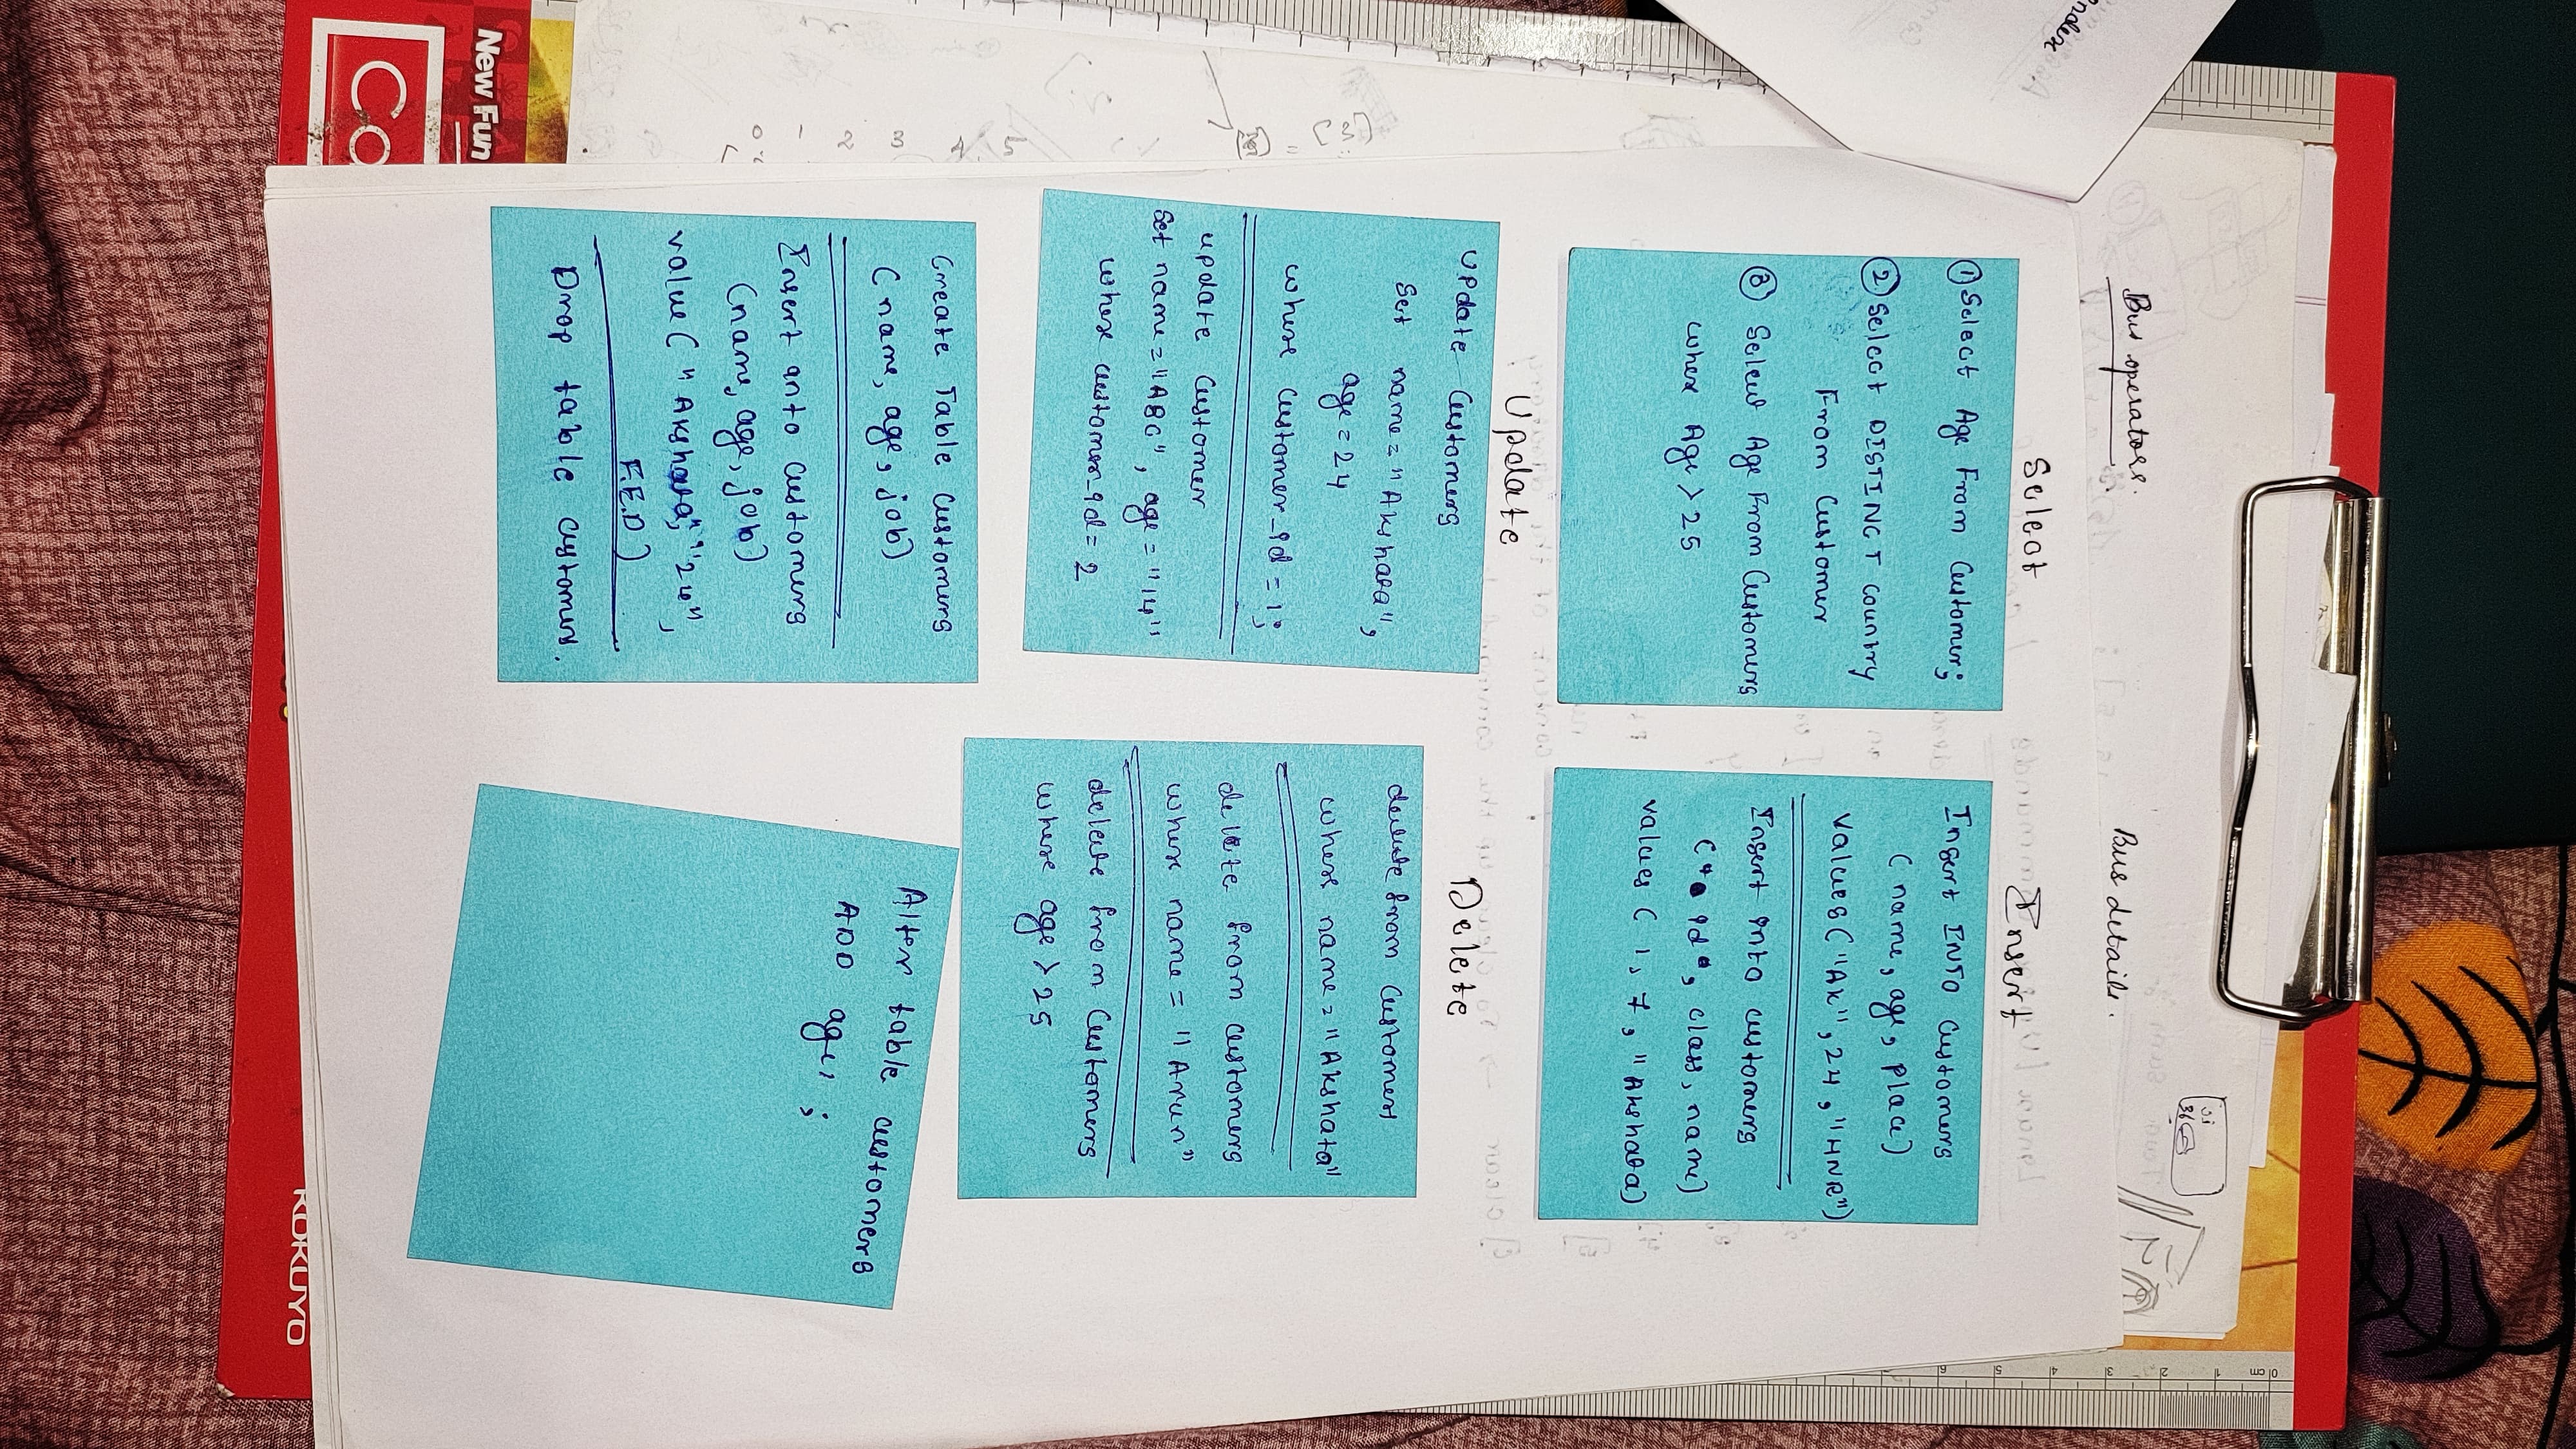 Index
New Fun
Co
Bus operators.
Bus details.
Select
① Select Age From Customer;
② Select DISTINCT country
From Customer
③ Select Age From Customers
where Age > 25
Insert
Insert INTO Customers
(name, age, place)
values ("AK", 24, "HNR")
Insert into customers
(id, class, name)
values (1, 7, "Akshata)
Update
Update Customers
Set name = "Akshata",
age = 24
where Customer_id = 1;
update Customer
Set name = "ABC", age = "14"
where customer_id = 2
Delete
delete from Customers
where name = "Akshata"
delete from customers
where name = "Arun"
delete from Customers
where age > 25
Create Table Customers
(name, age, job)
Insert into Customers
(name, age, job)
value ("Akshata", "24",
F.E.D)
Drop table customers.
Alter table customers
ADD age;
0 1 2 3 4 5
KOKUYO
0 cm 1 2 3 4 5 6